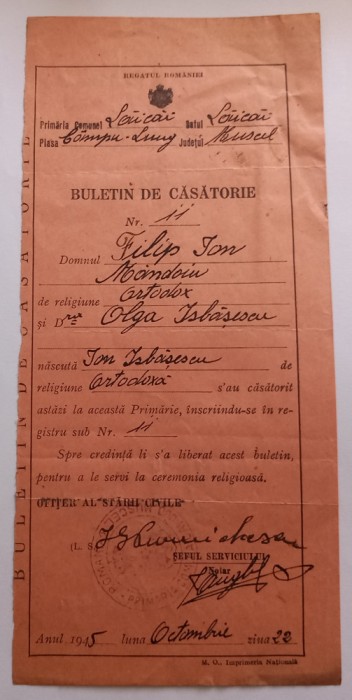 REGATUL ROMÂNIEI
Primăria Comunei Lăicăi Satul Lăicăi
Plasa Câmpu-Lung Județul Muscel
BULETIN DE CĂSĂTORIE
Nr. 11
Domnul Filip Ion
Măndoiu
de religiune Ortodox
și D-ra Olga Isbășescu
născută Ion Isbășescu de
religiune Ortodoxă s'au căsătorit
astăzi la această Primărie, înscriindu-se în re-
gistru sub Nr. 11
Spre credință li s'a liberat acest buletin,
pentru a le servi la ceremonia religioasă.
OFIȚER AL STĂRII CIVILE
(L. S.)
ȘEFUL SERVICIULUI
Notar
Anul 1945 luna Octombrie ziua 22
M. O., Imprimeria Națională
BULETIN DE CĂSĂTORIE